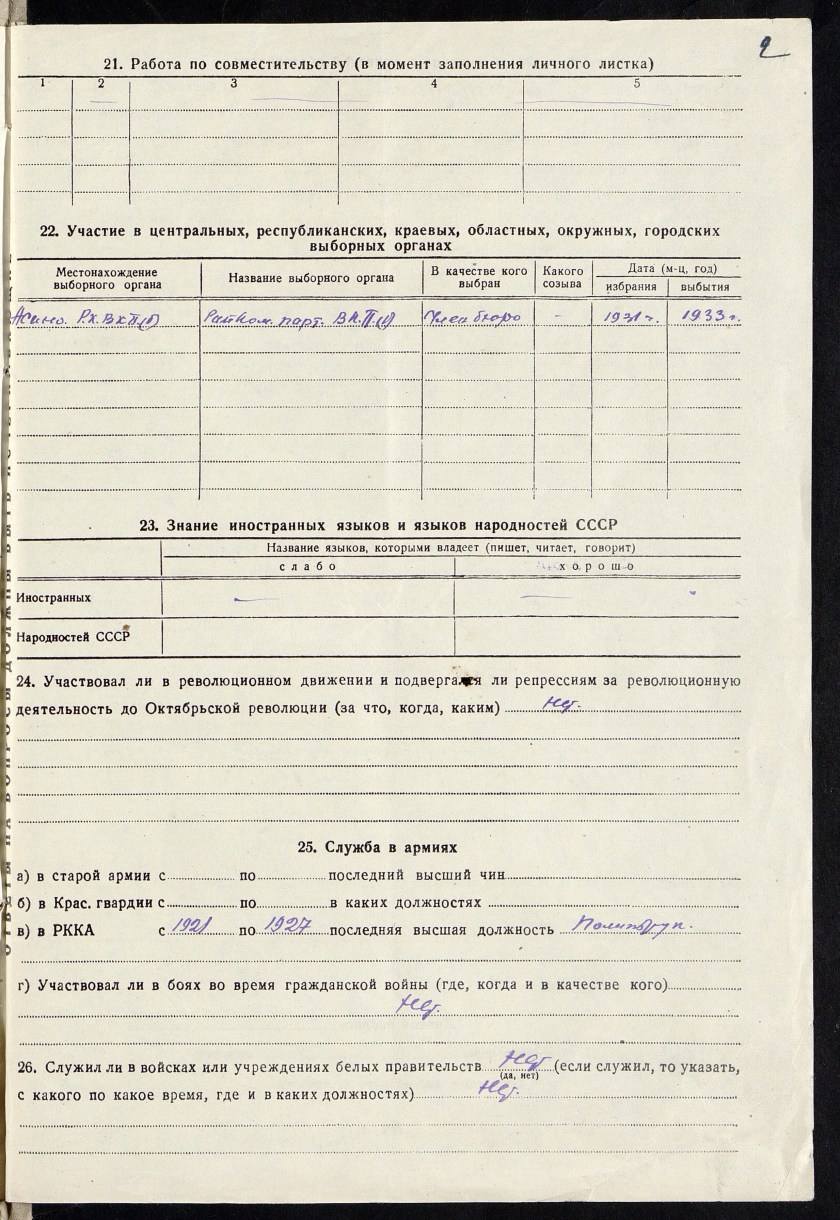 2
21. Работа по совместительству (в момент заполнения личного листка)
1 2 3 4 5
22. Участие в центральных, республиканских, краевых, областных, окружных, городских
выборных органах
Местонахождение выборного органа Название выборного органа В качестве кого выбран Какого созыва Дата (м-ц, год)
избрания выбытия
Асино. Р.К. ВКП(б) Райком. парт. ВКП(б) Член бюро - 1931 г. 1933 г.
23. Знание иностранных языков и языков народностей СССР
Название языков, которыми владеет (пишет, читает, говорит)
слабо хорошо
Иностранных
Народностей СССР
24. Участвовал ли в революционном движении и подвергался ли репрессиям за революционную
деятельность до Октябрьской революции (за что, когда, каким) Нет.
25. Служба в армиях
а) в старой армии с по последний высший чин
б) в Крас. гвардии с по в каких должностях
в) в РККА с 1921 по 1927 последняя высшая должность Политрук.
г) Участвовал ли в боях во время гражданской войны (где, когда и в качестве кого)
Нет.
26. Служил ли в войсках или учреждениях белых правительств Нет (если служил, то указать,
(да, нет)
с какого по какое время, где и в каких должностях) Нет.